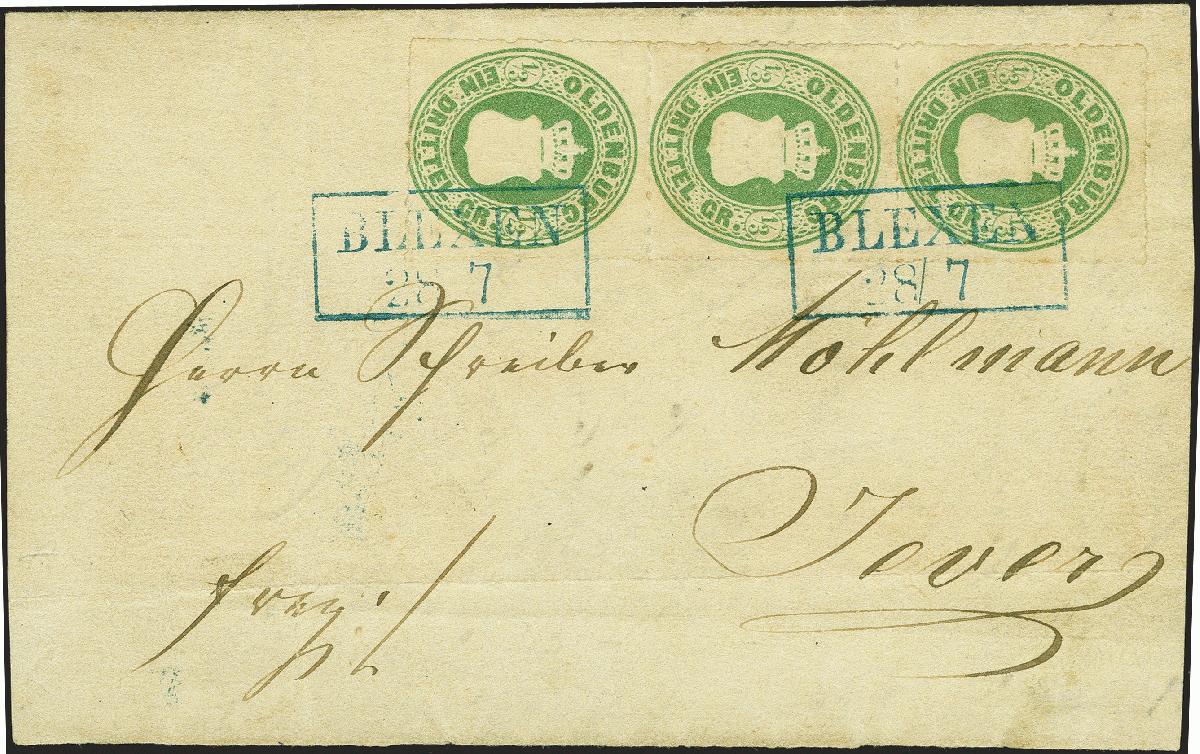 OLDENBURG EIN DRITTEL GR. 1/3 1/3
OLDENBURG EIN DRITTEL GR. 1/3 1/3
OLDENBURG EIN DRITTEL GR. 1/3 1/3
BLEXEN
28/7
BLEXEN
28/7
Herrn Schreiber Möhlmann
Jever